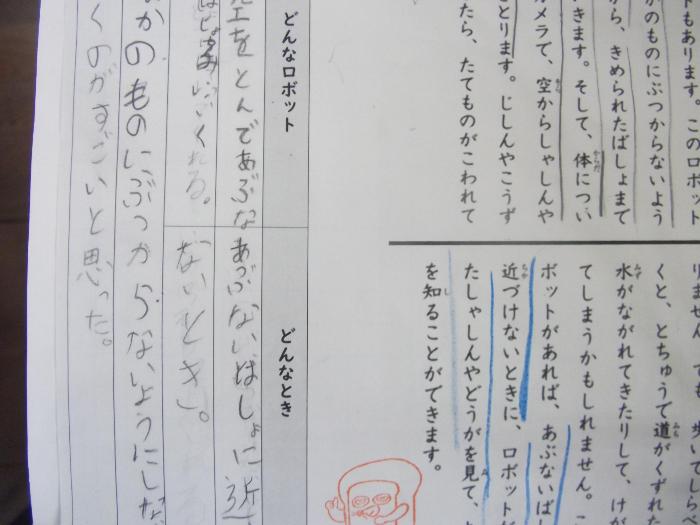 もあります。このロボット
かのものにぶつからないよう
から、きめられたばしょまで
きます。そして、体につい
カメラで、空からしゃしんや
とります。じしんやこうず
たら、たてものがこわれて
りません。でも、歩いてしらべ
くと、とちゅうで道がくずれた
水がながれてきたりして、け
てしまうかもしれません。
ボットがあれば、あぶないば
近づけないときに、ロボット
たしゃしんやどうがを見て、
を知ることができます。
どんなロボット
空をとんであぶな
いくれる。
どんなとき
あぶないばしょに近
ないとき。
かのものにぶつからないようにしな
くのがすごいと思った。